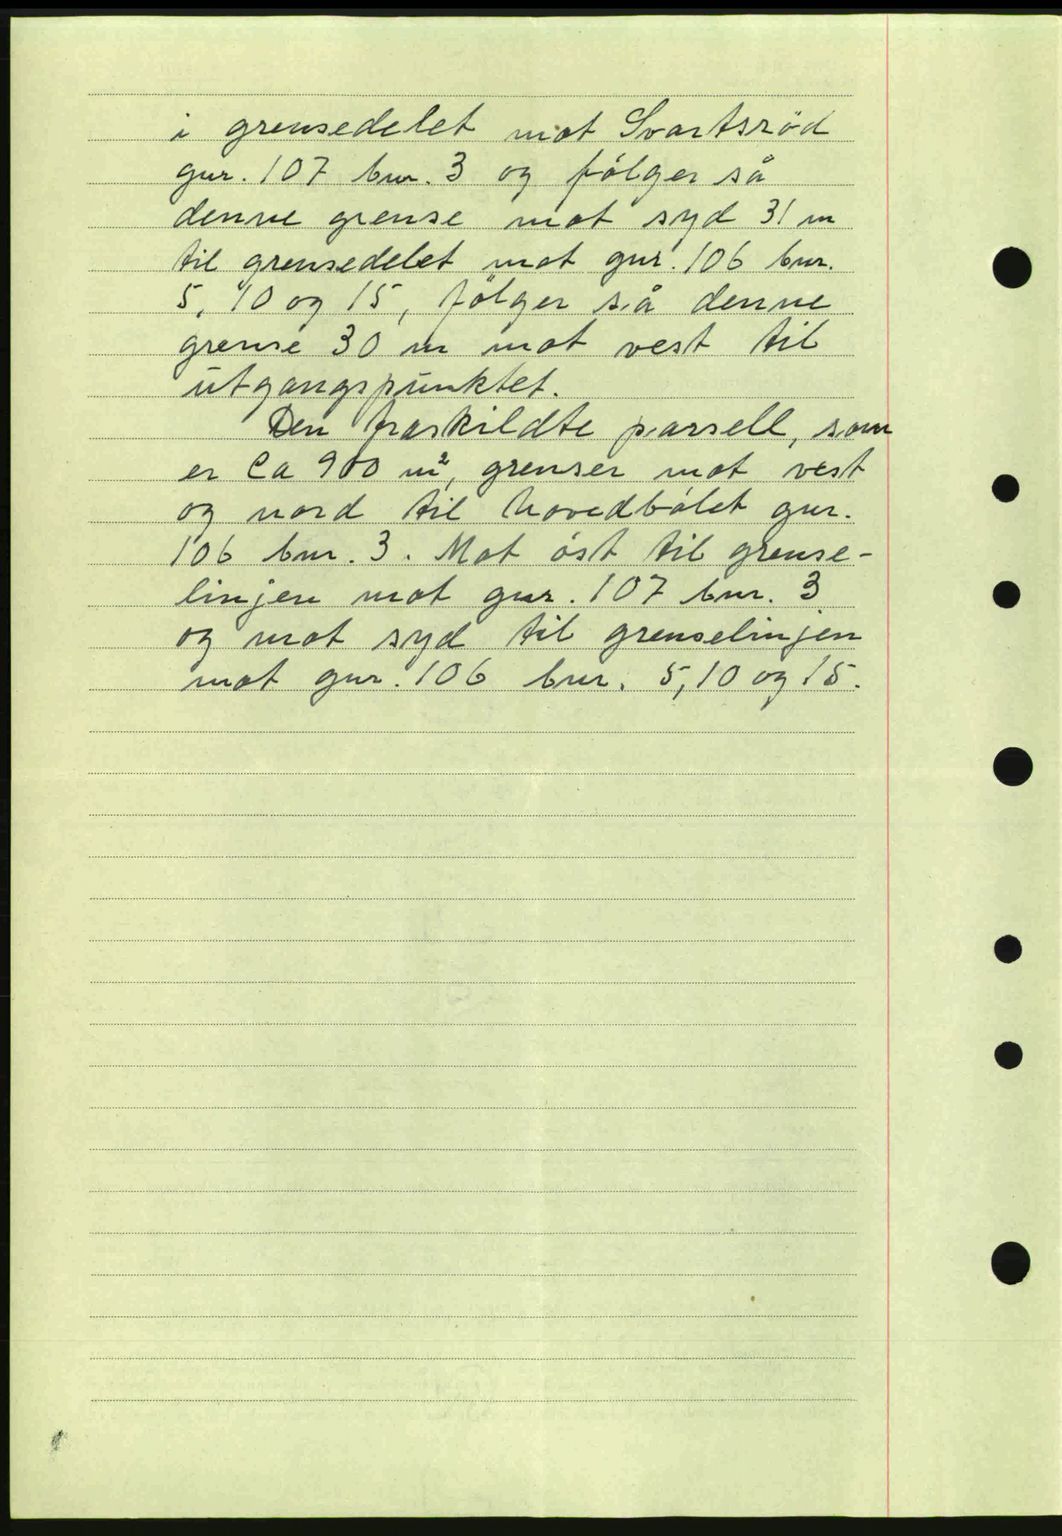 i grensedelet mot Svartsröd
gnr. 107 bnr. 3 og følger så
denne grense mot syd 31 m
til grensedelet mot gnr. 106 bnr.
5, 10 og 15, følger så denne
grense 30 m mot vest til
utgangspunktet.
Den fraskildte parsell, som
er ca 900 m², grenser mot vest
og nord til hovedbølet gnr.
106 bnr. 3. Mot øst til grense-
linjen mot gnr. 107 bnr. 3
og mot syd til grenselinjen
mot gnr. 106 bnr. 5, 10 og 15.